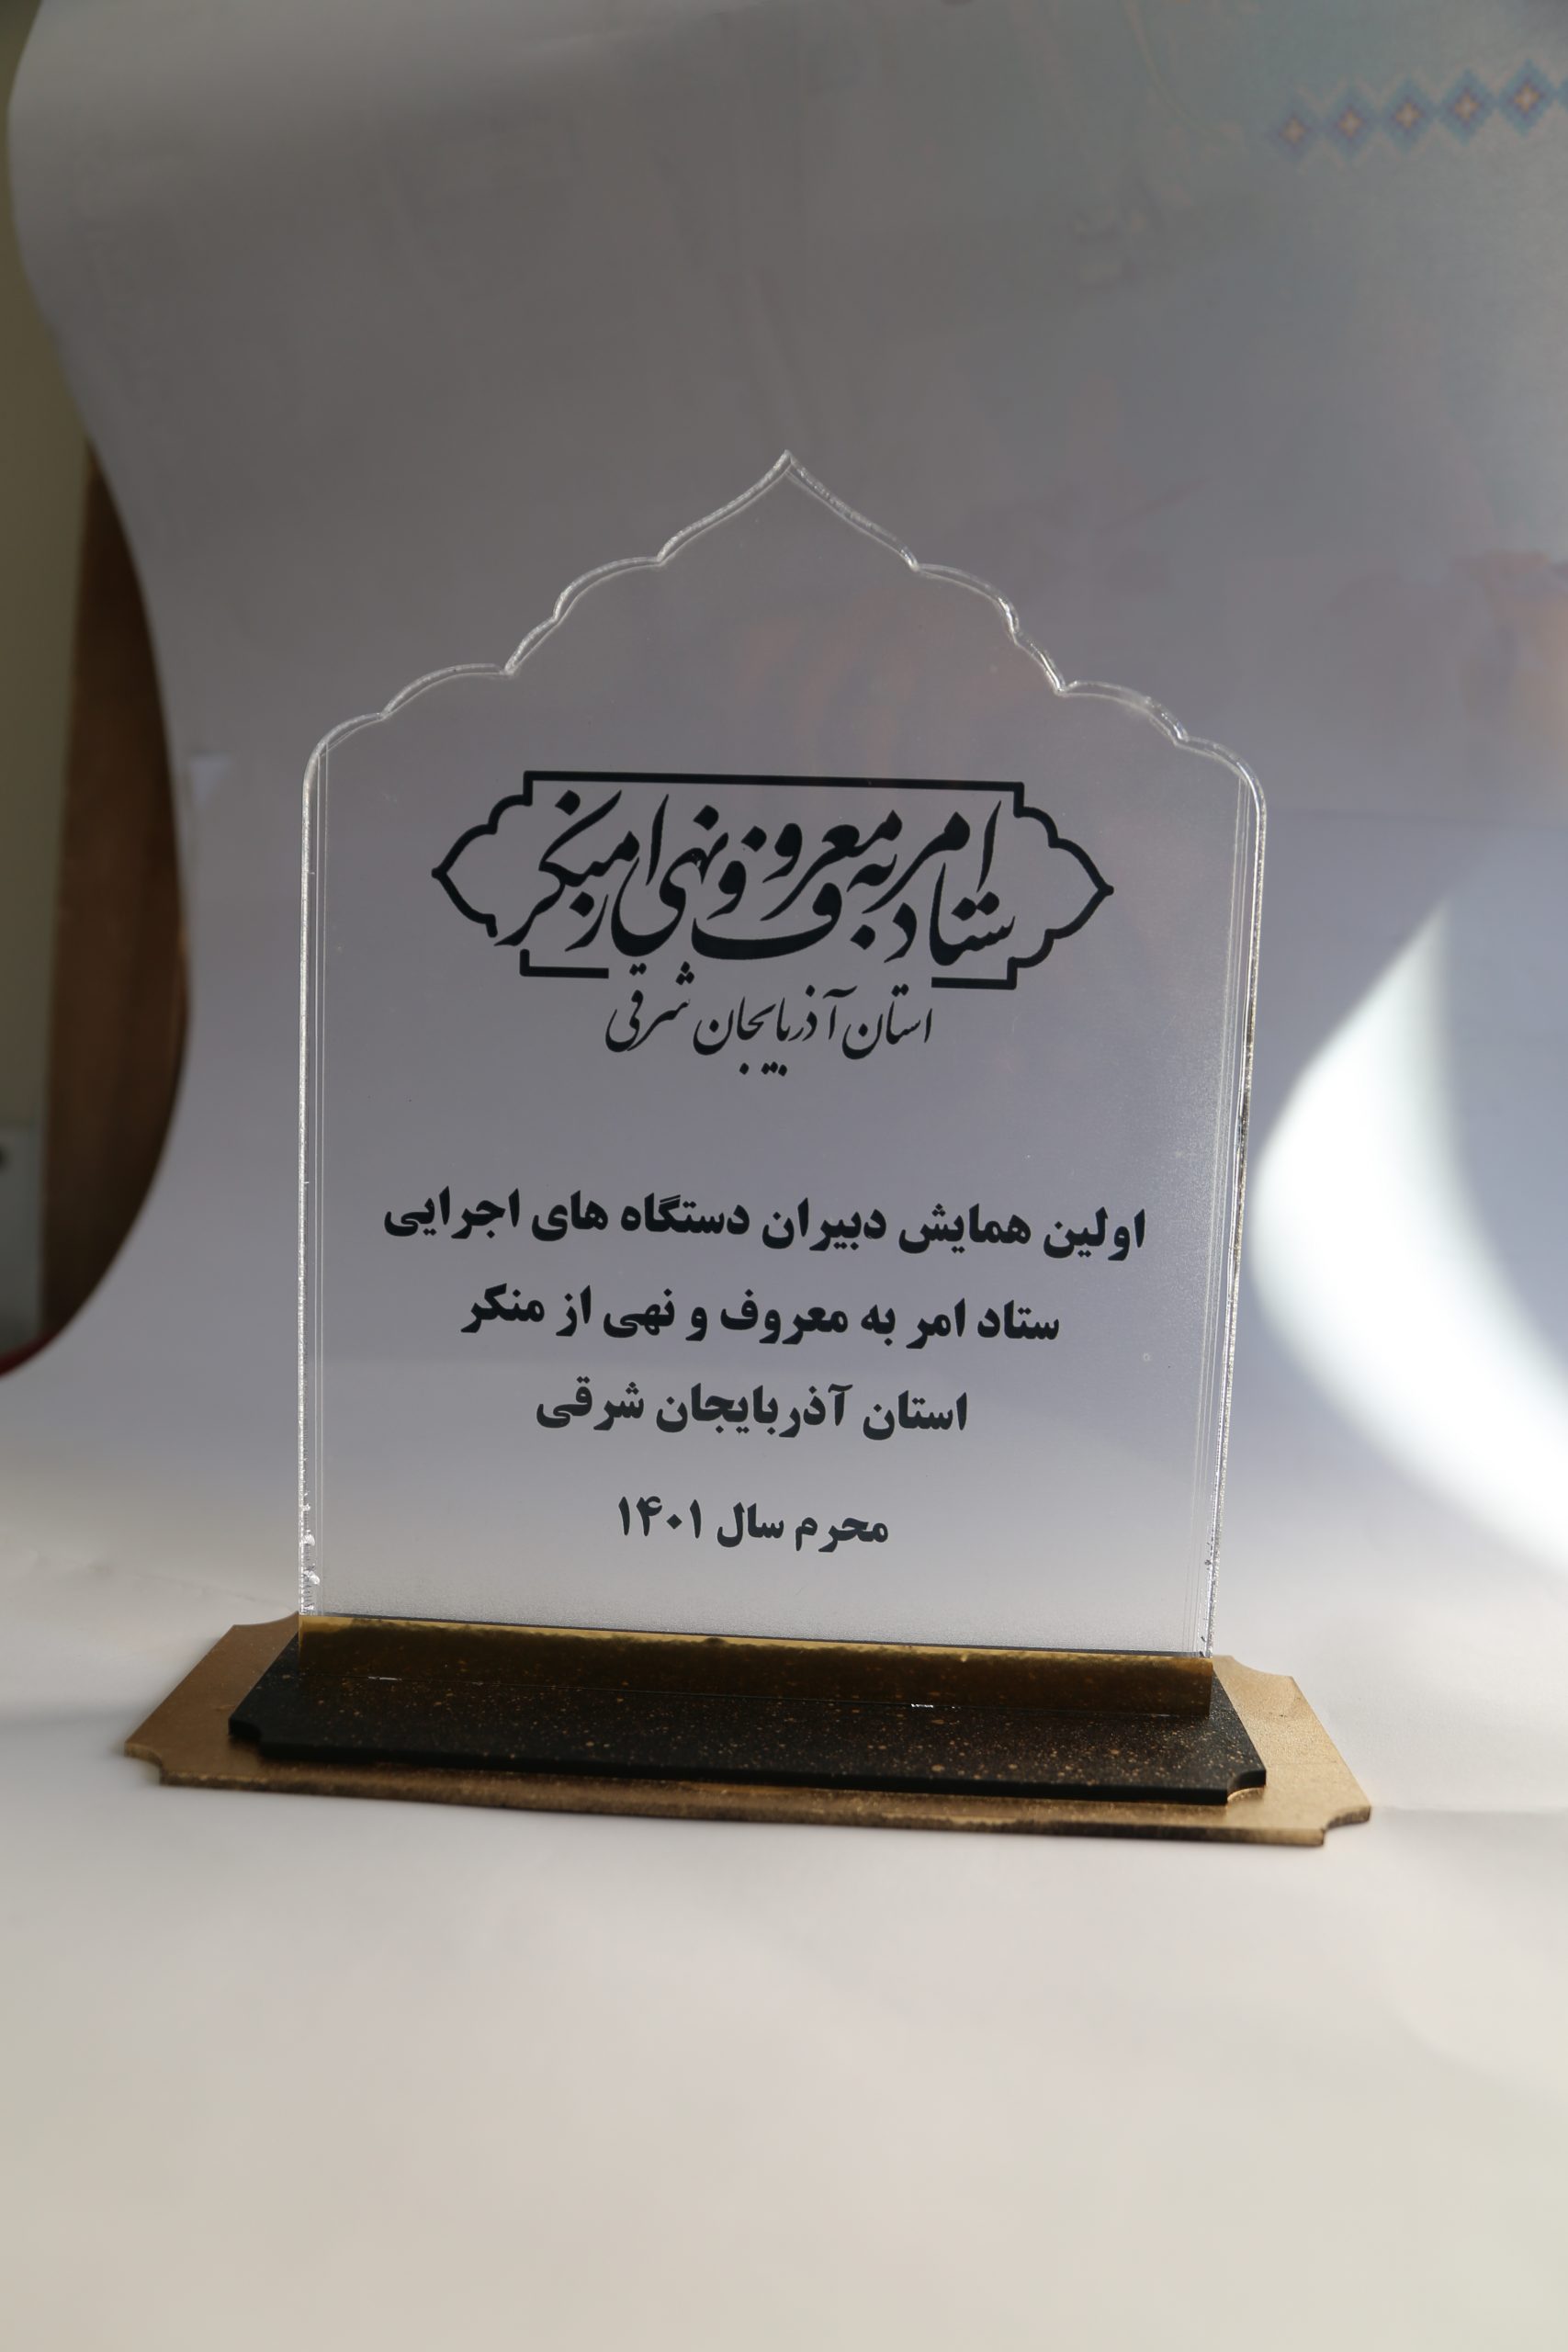 ستاد امر به معروف و نهی از منکر
استان آذربایجان شرقی
اولین همایش دبیران دستگاه های اجرایی
ستاد امر به معروف و نهی از منکر
استان آذربایجان شرقی
محرم سال ۱۴۰۱